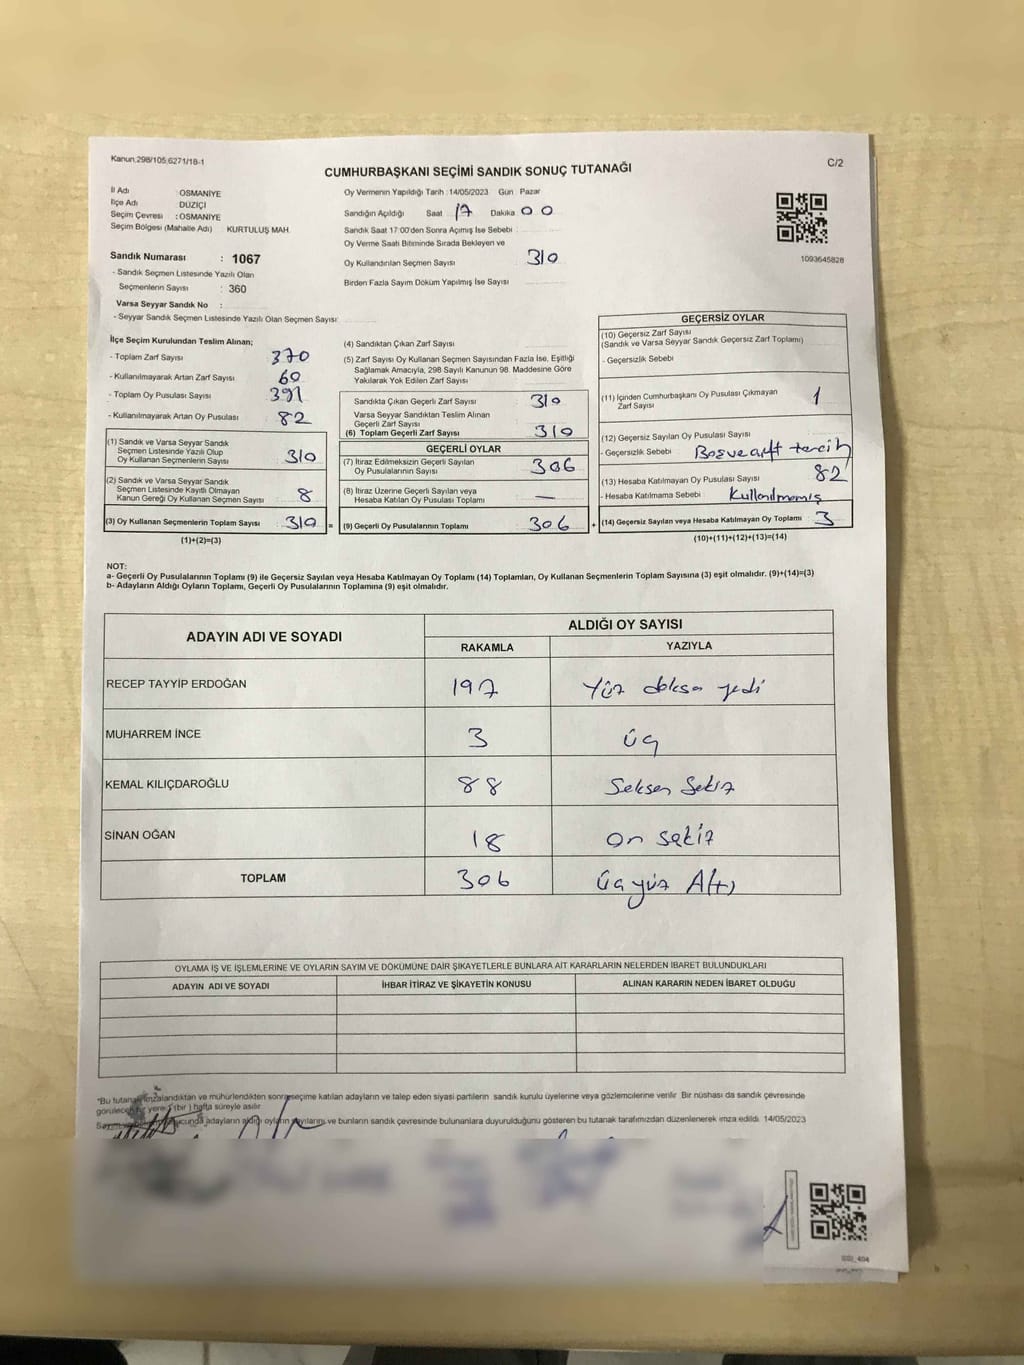 Kanun.298/105,6271/18-1
C/2
CUMHURBAŞKANI SEÇİMİ SANDIK SONUÇ TUTANAĞI
İl Adı : OSMANİYE
İlçe Adı DÜZİÇİ
Seçim Çevresi : OSMANİYE
Seçim Bölgesi (Mahalle Adı) KURTULUŞ MAH.
Sandık Numarası : 1067
- Sandık Seçmen Listesinde Yazılı Olan
Seçmenlerin Sayısı : 360
Varsa Seyyar Sandık No :
- Seyyar Sandık Seçmen Listesinde Yazılı Olan Seçmen Sayısı
Oy Vermenin Yapıldığı Tarih : 14/05/2023 Gün Pazar
Sandığın Açıldığı Saat 17 Dakika 00
Sandık Saat 17:00'den Sonra Açımış İse Sebebi :
Oy Verme Saati Bitiminde Sırada Bekleyen ve
Oy Kullandırılan Seçmen Sayısı 310
Birden Fazla Sayım Döküm Yapılmış İse Sayısı
1093645828
İlçe Seçim Kurulundan Teslim Alınan;
- Toplam Zarf Sayısı 370
- Kullanılmayarak Artan Zarf Sayısı 60
- Toplam Oy Pusulası Sayısı 391
- Kullanılmayarak Artan Oy Pusulası 82
(1) Sandık ve Varsa Seyyar Sandık
Seçmen Listesinde Yazılı Olup
Oy Kullanan Seçmenlerin Sayısı 310
(2) Sandık ve Varsa Seyyar Sandık
Seçmen Listesinde Kayıtlı Olmayan
Kanun Gereği Oy Kullanan Seçmen Sayısı 8
(3) Oy Kullanan Seçmenlerin Toplam Sayısı 310 =
(1)+(2)=(3)
(4) Sandıktan Çıkan Zarf Sayısı
(5) Zarf Sayısı Oy Kullanan Seçmen Sayısından Fazla İse, Eşitliği
Sağlamak Amacıyla, 298 Sayılı Kanunun 98. Maddesine Göre
Yakılarak Yok Edilen Zarf Sayısı
Sandıkta Çıkan Geçerli Zarf Sayısı 310
Varsa Seyyar Sandıktan Teslim Alınan
Geçerli Zarf Sayısı
(6) Toplam Geçerli Zarf Sayısı 310
GEÇERLİ OYLAR
(7) İtiraz Edilmeksizin Geçerli Sayılan
Oy Pusulalarının Sayısı 306
(8) İtiraz Üzerine Geçerli Sayılan veya
Hesaba Katılan Oy Pusulası Toplamı —
(9) Geçerli Oy Pusulalarının Toplamı 306 +
GEÇERSİZ OYLAR
(10) Geçersiz Zarf Sayısı
(Sandık ve Varsa Seyyar Sandık Geçersiz Zarf Toplamı)
- Geçersizlik Sebebi
(11) İçinden Cumhurbaşkanı Oy Pusulası Çıkmayan
Zarf Sayısı 1
(12) Geçersiz Sayılan Oy Pusulası Sayısı
- Geçersizlik Sebebi Boş ve çift tercih
(13) Hesaba Katılmayan Oy Pusulası Sayısı 82
- Hesaba Katılmama Sebebi Kullanılmamış
(14) Geçersiz Sayılan veya Hesaba Katılmayan Oy Toplamı 3
(10)+(11)+(12)+(13)=(14)
NOT:
a- Geçerli Oy Pusulalarının Toplamı (9) ile Geçersiz Sayılan veya Hesaba Katılmayan Oy Toplamı (14) Toplamları, Oy Kullanan Seçmenlerin Toplam Sayısına (3) eşit olmalıdır. (9)+(14)=(3)
b- Adayların Aldığı Oyların Toplamı, Geçerli Oy Pusulalarının Toplamına (9) eşit olmalıdır.
ADAYIN ADI VE SOYADI
ALDIĞI OY SAYISI
RAKAMLA YAZIYLA
RECEP TAYYİP ERDOĞAN 197 Yüz doksan yedi
MUHARREM İNCE 3 üç
KEMAL KILIÇDAROĞLU 88 Seksen Sekiz
SİNAN OĞAN 18 on sekiz
TOPLAM 306 üçyüz Altı
OYLAMA İŞ VE İŞLEMLERİNE VE OYLARIN SAYIM VE DÖKÜMÜNE DAİR ŞİKAYETLERLE BUNLARA AİT KARARLARIN NELERDEN İBARET BULUNDUKLARI
ADAYIN ADI VE SOYADI İHBAR İTİRAZ VE ŞİKAYETİN KONUSU ALINAN KARARIN NEDEN İBARET OLDUĞU
"Bu tutanak imzalandıktan ve mühürlendikten sonra seçime katılan adayların ve talep eden siyasi partilerin sandık kurulu üyelerine veya gözlemcilerine verilir. Bir nüshası da sandık çevresinde
görülecek bir yere 1 (bir) hafta süreyle asılır.
adayların aldığı oyların sayılarını ve bunların sandık çevresinde bulunanlara duyurulduğunu gösteren bu tutanak tarafımızdan düzenlenerek imza edildi. 14/05/2023